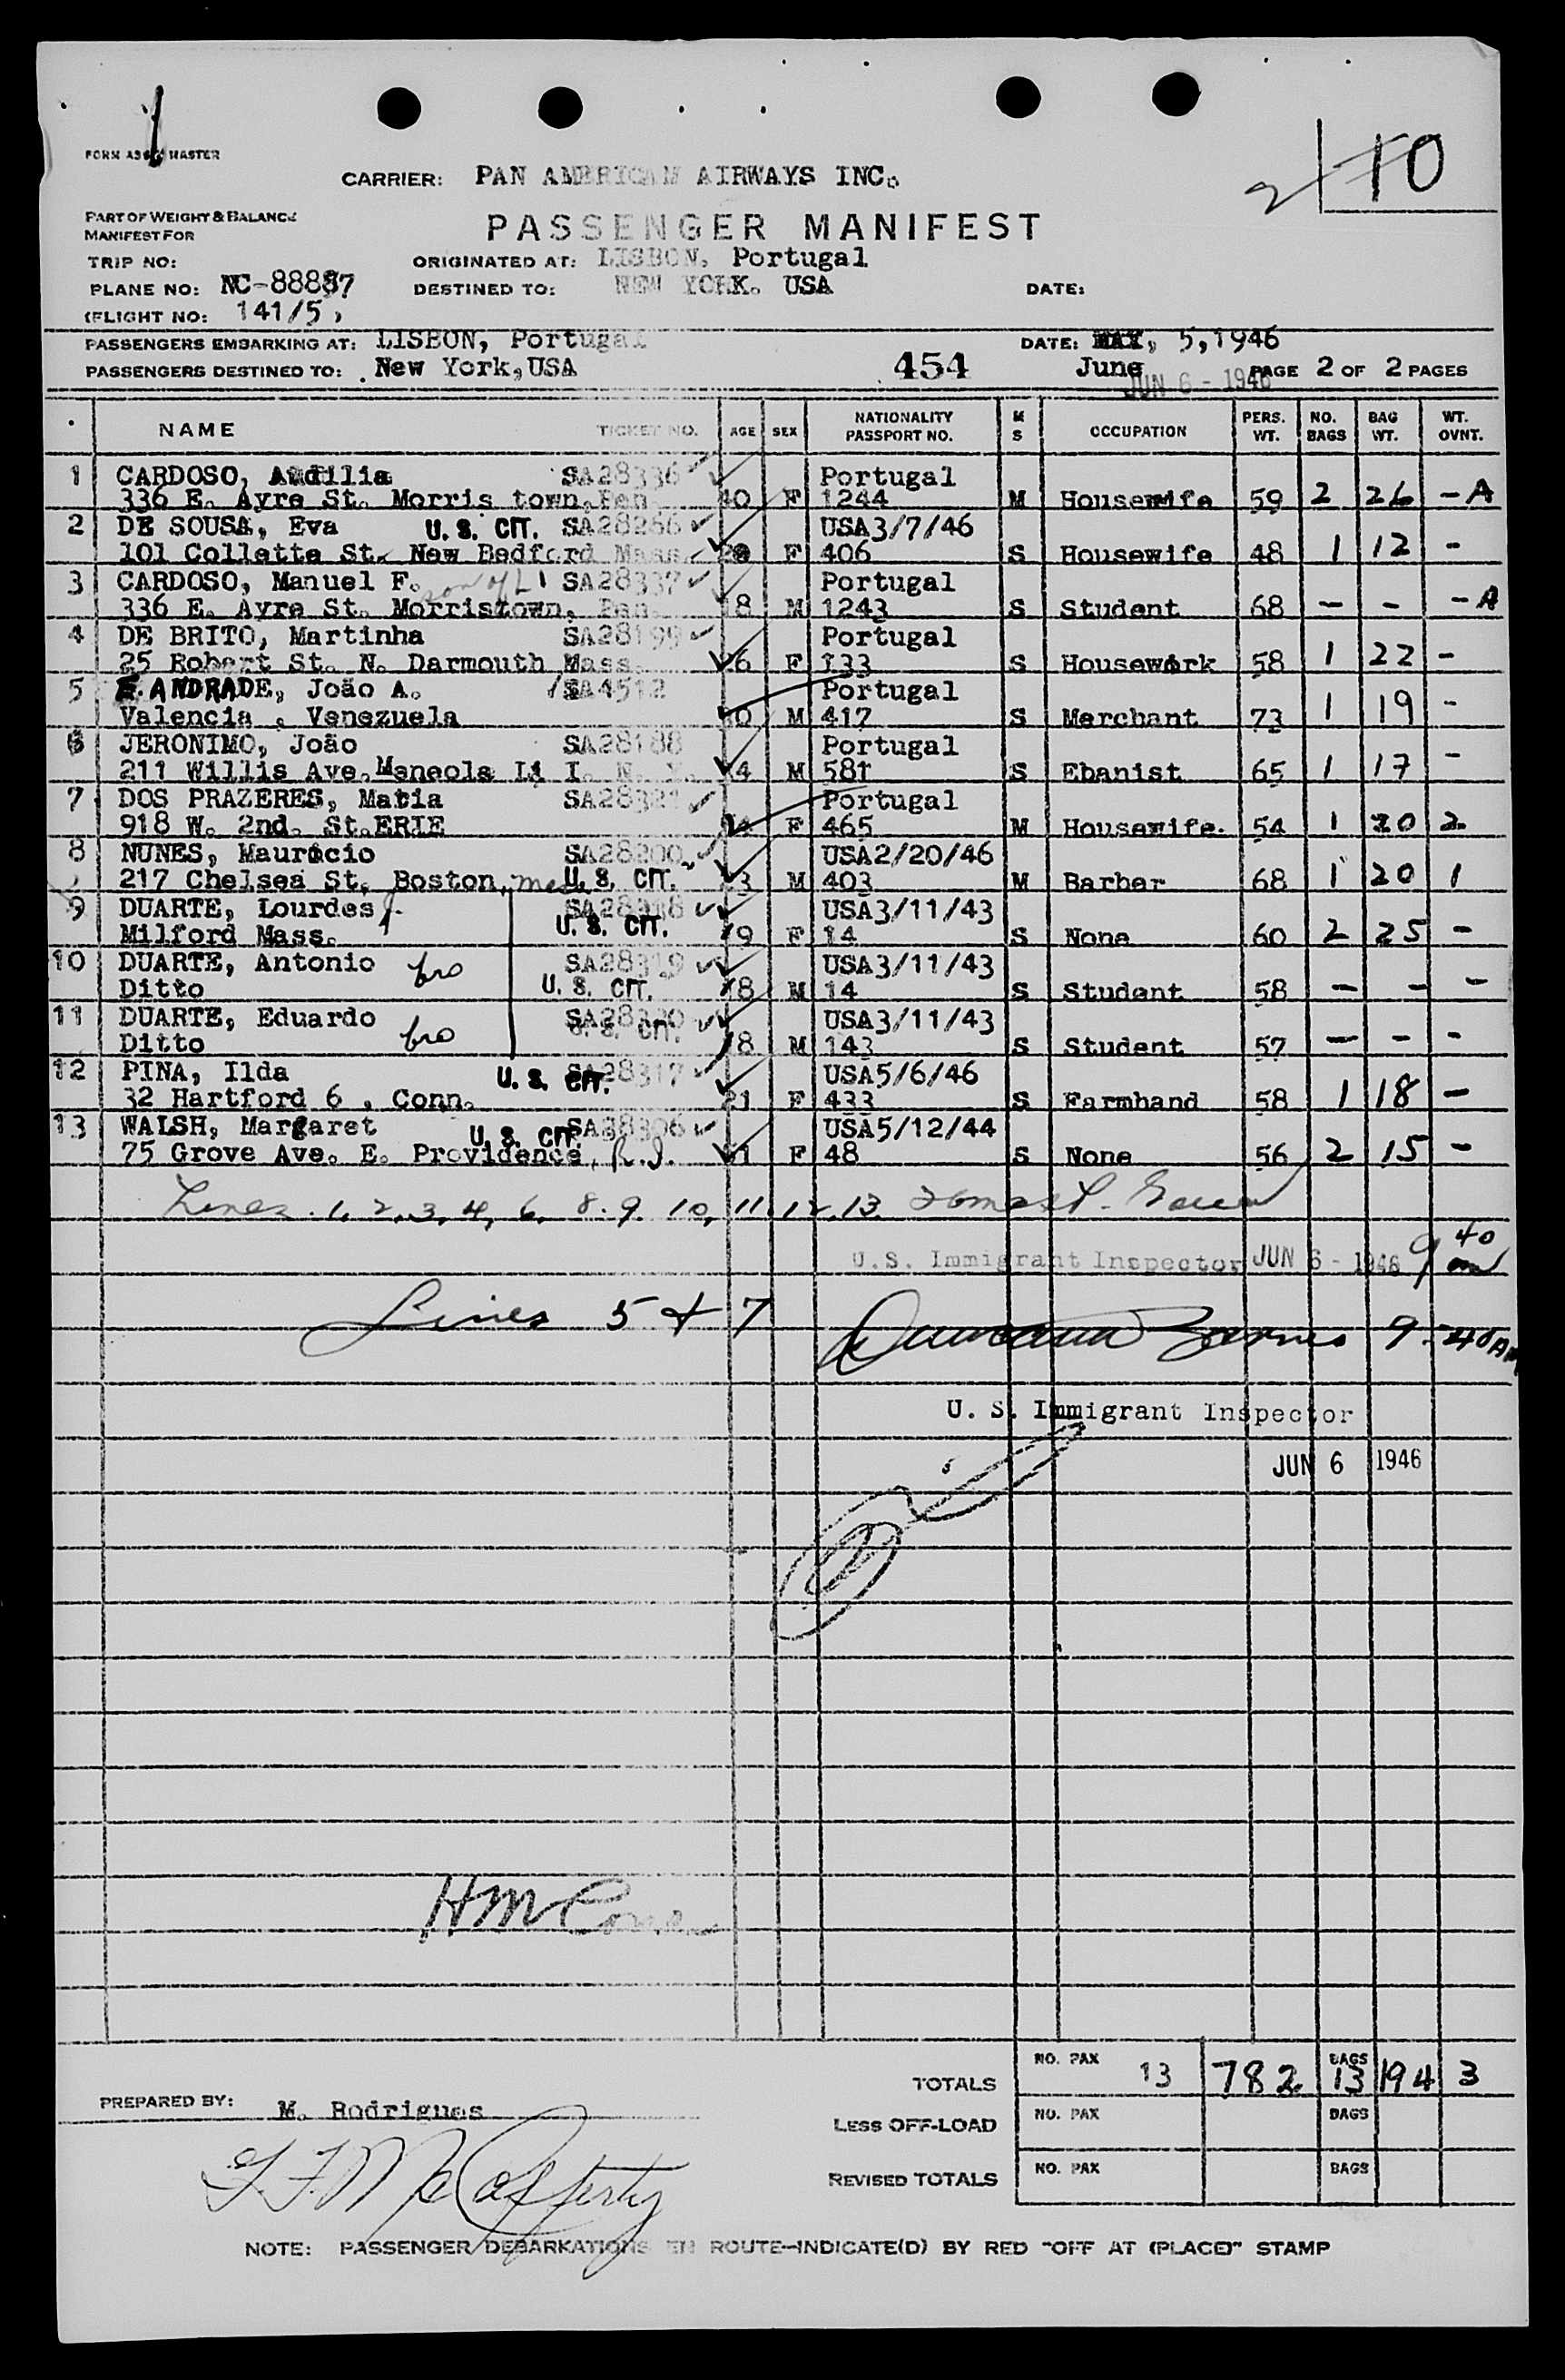 1
FORM MASTER
CARRIER: PAN AMERICAN AIRWAYS INC.
2 10
PART OF WEIGHT & BALANCE
MANIFEST FOR
PASSENGER MANIFEST
TRIP NO:
ORIGINATED AT: LISBON, Portugal
PLANE NO: NC-88887
DESTINED TO: NEW YORK. USA
DATE:
FLIGHT NO: 141/5
PASSENGERS EMBARKING AT: LISBON, Portugal
DATE: MAY, 5,1946
PASSENGERS DESTINED TO: New York,USA
454
June
JUN 6 - 1946
PAGE 2 OF 2 PAGES
NAME TICKET NO. AGE SEX NATIONALITY PASSPORT NO. M S OCCUPATION PERS. WT. NO. BAGS BAG WT. WT. OVNT.
1 CARDOSO, SA28336 Portugal
336 E. Ayre St. Morris town, Pen. 40 F 1244 M Housewife 59 2 26 - A
2 DE SOUSA, Eva U. S. CIT. SA28266 USA3/7/46
101 Collette St. New Bedford Mass. F 406 S Housewife 48 1 12 -
3 CARDOSO, Manuel F. son of L 1 SA28337 Portugal
336 E. Ayre St. Morristown, Pen. 18 M 1243 S Student 68 - - - A
4 DE BRITO, Martinha SA28199 Portugal
25 Robert St. N. Darmouth Mass. 26 F 133 S Housework 58 1 22 -
5 ANDRADE, João A. SA4512 Portugal
Valencia, Venezuela M 417 S Merchant 73 1 19 -
6 JERONIMO, João SA28188 Portugal
211 Willis Ave. Maneola Li I. N. Y. M 581 S Ebanist 65 1 17 -
7 DOS PRAZERES, Maria SA28321 Portugal
918 W. 2nd. St.ERIE F 465 M Housewife. 54 1 20 2
8 NUNES, Mauricio SA28200 USA2/20/46
217 Chelsea St. Boston, Mass. U. S. CIT. M 403 M Barber 68 1 20 1
9 DUARTE, Lourdes SA28318 USA3/11/43
Milford Mass. U. S. CIT. 19 F 14 S None 60 2 25 -
10 DUARTE, Antonio bro SA28319 USA3/11/43
Ditto U. S. CIT. 18 M 14 S Student 58 - - -
11 DUARTE, Eduardo bro SA28320 USA3/11/43
Ditto U. S. CIT. 18 M 143 S Student 57 - - -
12 PINA, Ilda U. S. CIT. SA28317 USA5/6/46
32 Hartford 6 , Conn. 21 F 433 S Farmhand 58 1 18 -
13 WALSH, Margaret U. S. CIT. SA28306 USA5/12/44
75 Grove Ave. E. Providence, R.I. F 48 S None 56 2 15 -
Lines 1, 2, 3, 4, 6, 8. 9. 10, 11, 12, 13.
U.S. Immigrant Inspector JUN 6 - 1946 9 40 am
Lines 5 & 7 Barnes 9:40 AM
U. S. Immigrant Inspector
JUN 6 1946
TOTALS NO. PAX 13 782 BAGS 13 194 3
PREPARED BY: M. Rodrigues
LESS OFF-LOAD NO. PAX BAGS
REVISED TOTALS NO. PAX BAGS
McCafferty
NOTE: PASSENGER DEBARKATIONS EN ROUTE—INDICATE(D) BY RED "OFF AT (PLACE)" STAMP